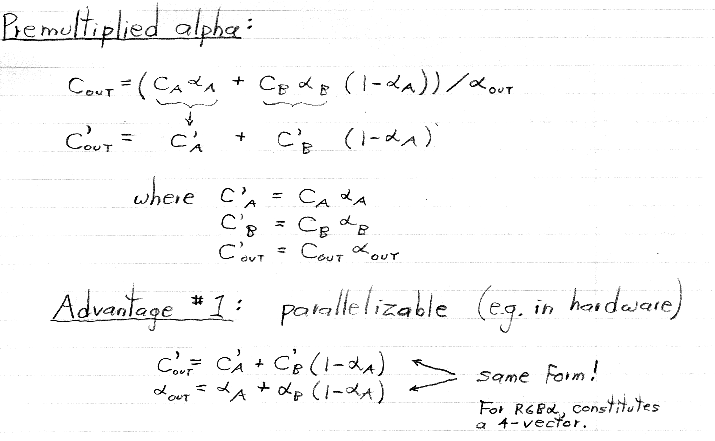 Premultiplied alpha:
C_OUT = (C_A α_A + C_B α_B (1-α_A))/α_OUT
C'_OUT = C'_A + C'_B (1-α_A)
where C'_A = C_A α_A
C'_B = C_B α_B
C'_OUT = C_OUT α_OUT
Advantage #1: parallelizable (e.g. in hardware)
C'_OUT = C'_A + C'_B (1-α_A)
α_OUT = α_A + α_B (1-α_A)
same form!
For RGBα, constitutes
a 4-vector.